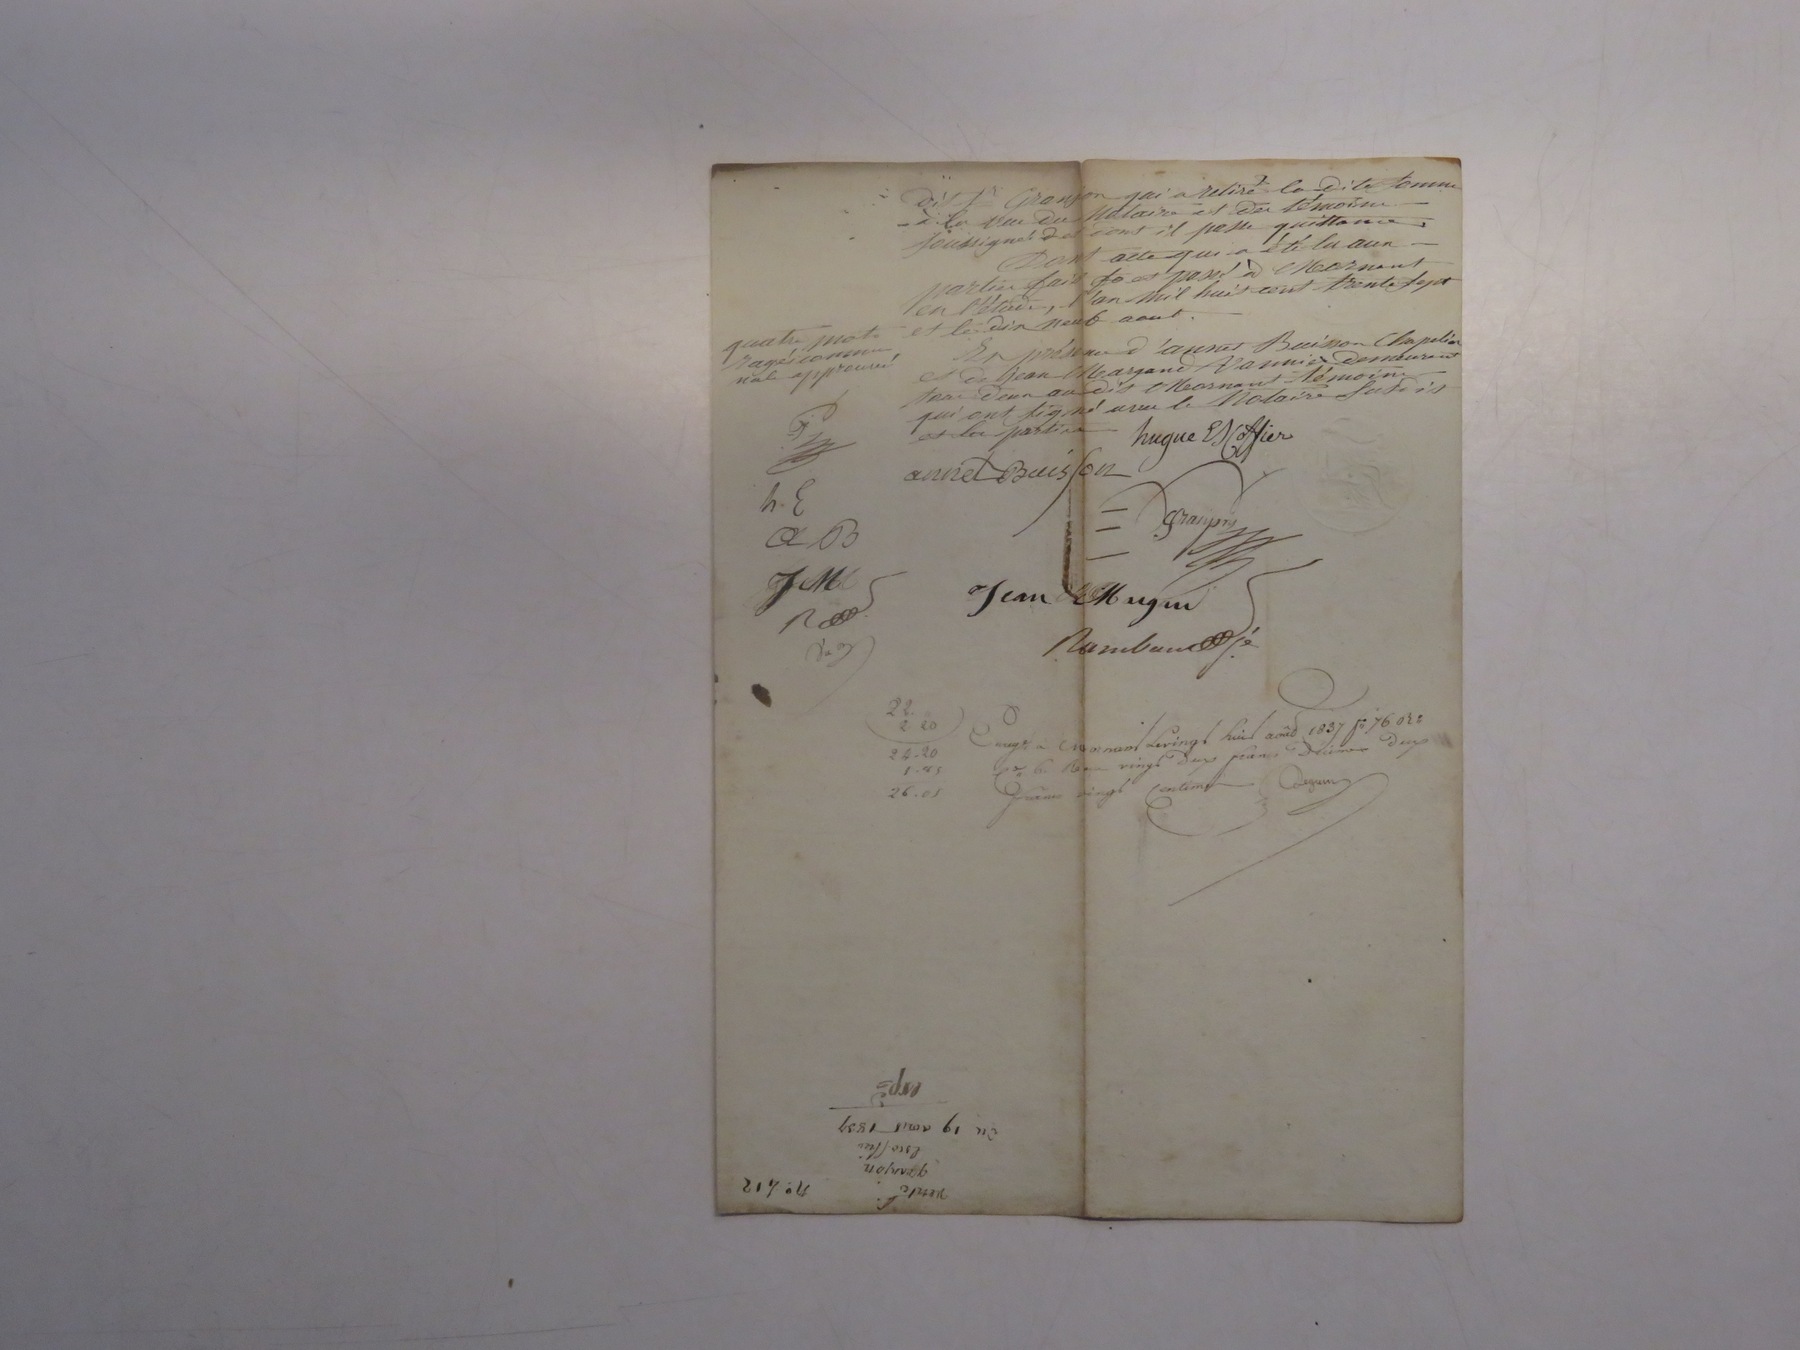 dit Sr Granjon qui a retiré la dite somme
à la vue du Notaire et des témoins
soussignés de dont il passe quittance.
Dont acte qui a été lu aux
parties fait et passé à Mornant
en l'étude, l'an mil huit cent trente sept
et le dix neuf aout.
En présence d'annet Buisson Chapelier
et de Jean Vannier demeurant
tous deux au dit Mornant témoins
qui ont signé avec le Notaire susdit
et les parties
quatre mots
rayés comme
nuls approuvés
hugue EScoffier
annet Buisson
h. E
granjon
a B
J M
Jean
R
Rambaud
22.
2 20
24-20
26-05
à Mornant le vingt huit août 1837 fo 76
vingt deux francs décime deux
francs vingt centimes
No. 412
vente
granjon
Escoffier
du 19 aout 1837
expé